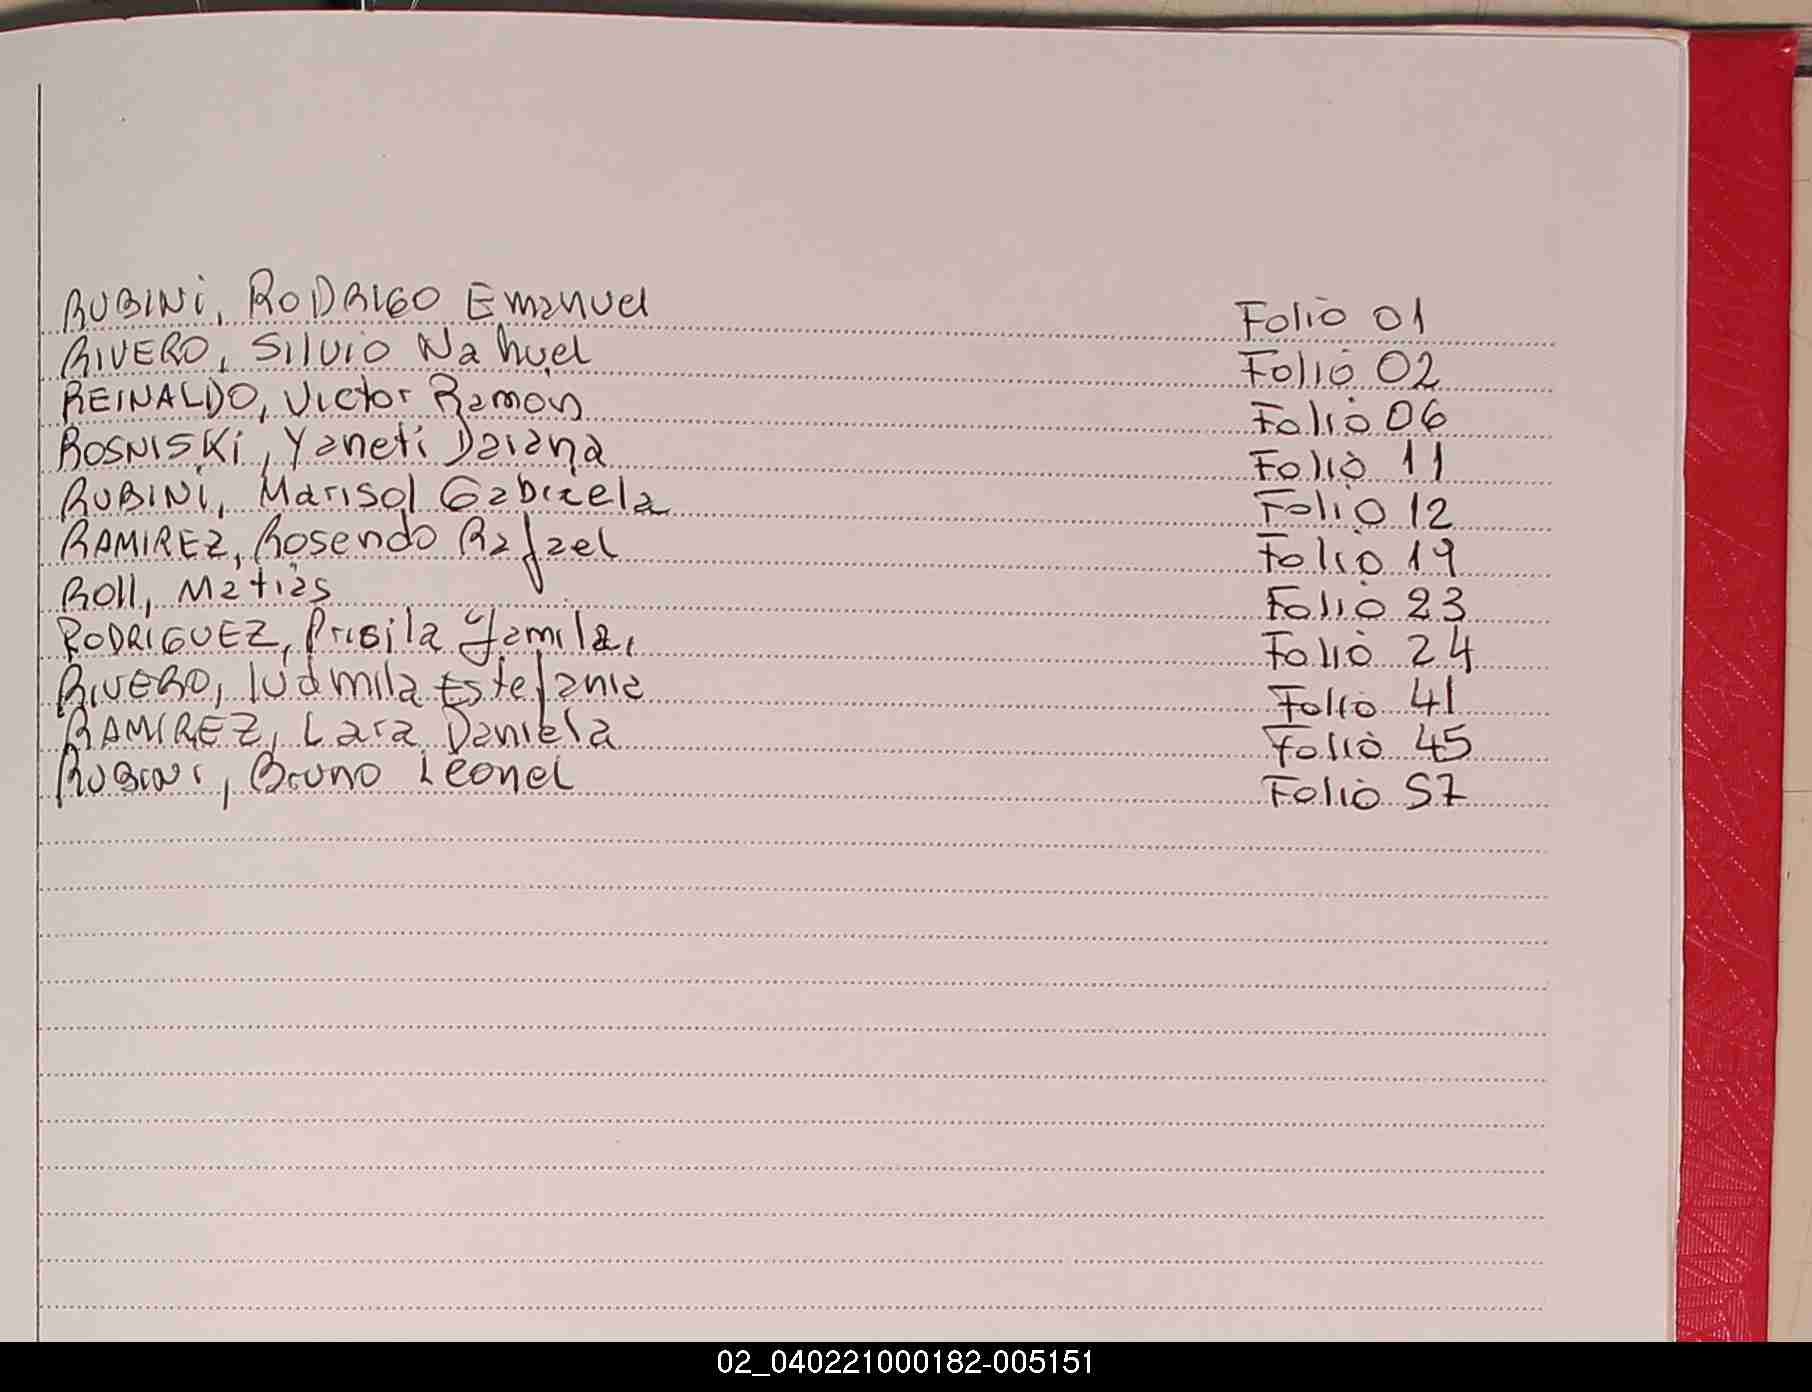 RUBINI, RODRIGO Emanuel Folio 01
RIVERO, Silvio Nahuel Folio 02
REINALDO, Victor Ramón Folio 06
ROSNISKI, Yaneti Daiana Folio 11
RUBINI, Marisol Gabriela Folio 12
RAMIREZ, Rosendo Rafael Folio 19
Roll, Matias Folio 23
RODRIGUEZ, Prisila Yamila, Folio 24
RIVERO, ludmila Estefania Folio 41
RAMIREZ, Lara Daniela Folio 45
RUBINI, Bruno Leonel Folio 57
02_040221000182-005151